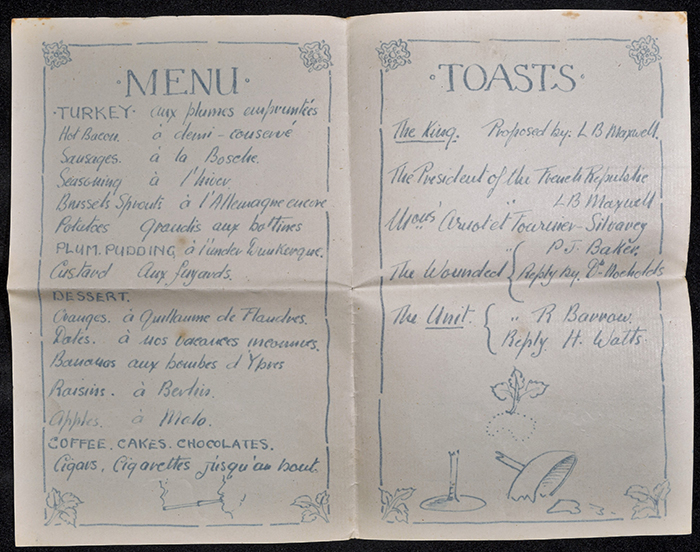 · MENU ·
· TURKEY · aux plumes empruntées
Hot Bacon. à demi-conservé
Sausages. à la Bosche.
Seasoning à l'hiver
Brussels Sprouts à l'Allemagne encore
Potatoes grandis aux bottines
PLUM. PUDDING à l'under Dunkerque.
Custard Aux fuyards.
DESSERT.
Oranges. à Guillaume de Flandres.
Dates. à nos vacances inconnues.
Bananas aux bombes d'Ypres
Raisins. à Berlin.
Apples. à Malo.
COFFEE. CAKES. CHOCOLATES.
Cigars, Cigarettes jusqu'au bout.
· TOASTS ·
The King. Proposed by. L B Maxwell.
The President of the French Republic
" LB Maxwell
et Tournier-Silvarey
" P.J. Baker.
The Wounded Reply by. Dr
The Unit. " R Barrow.
Reply. H. Watts.